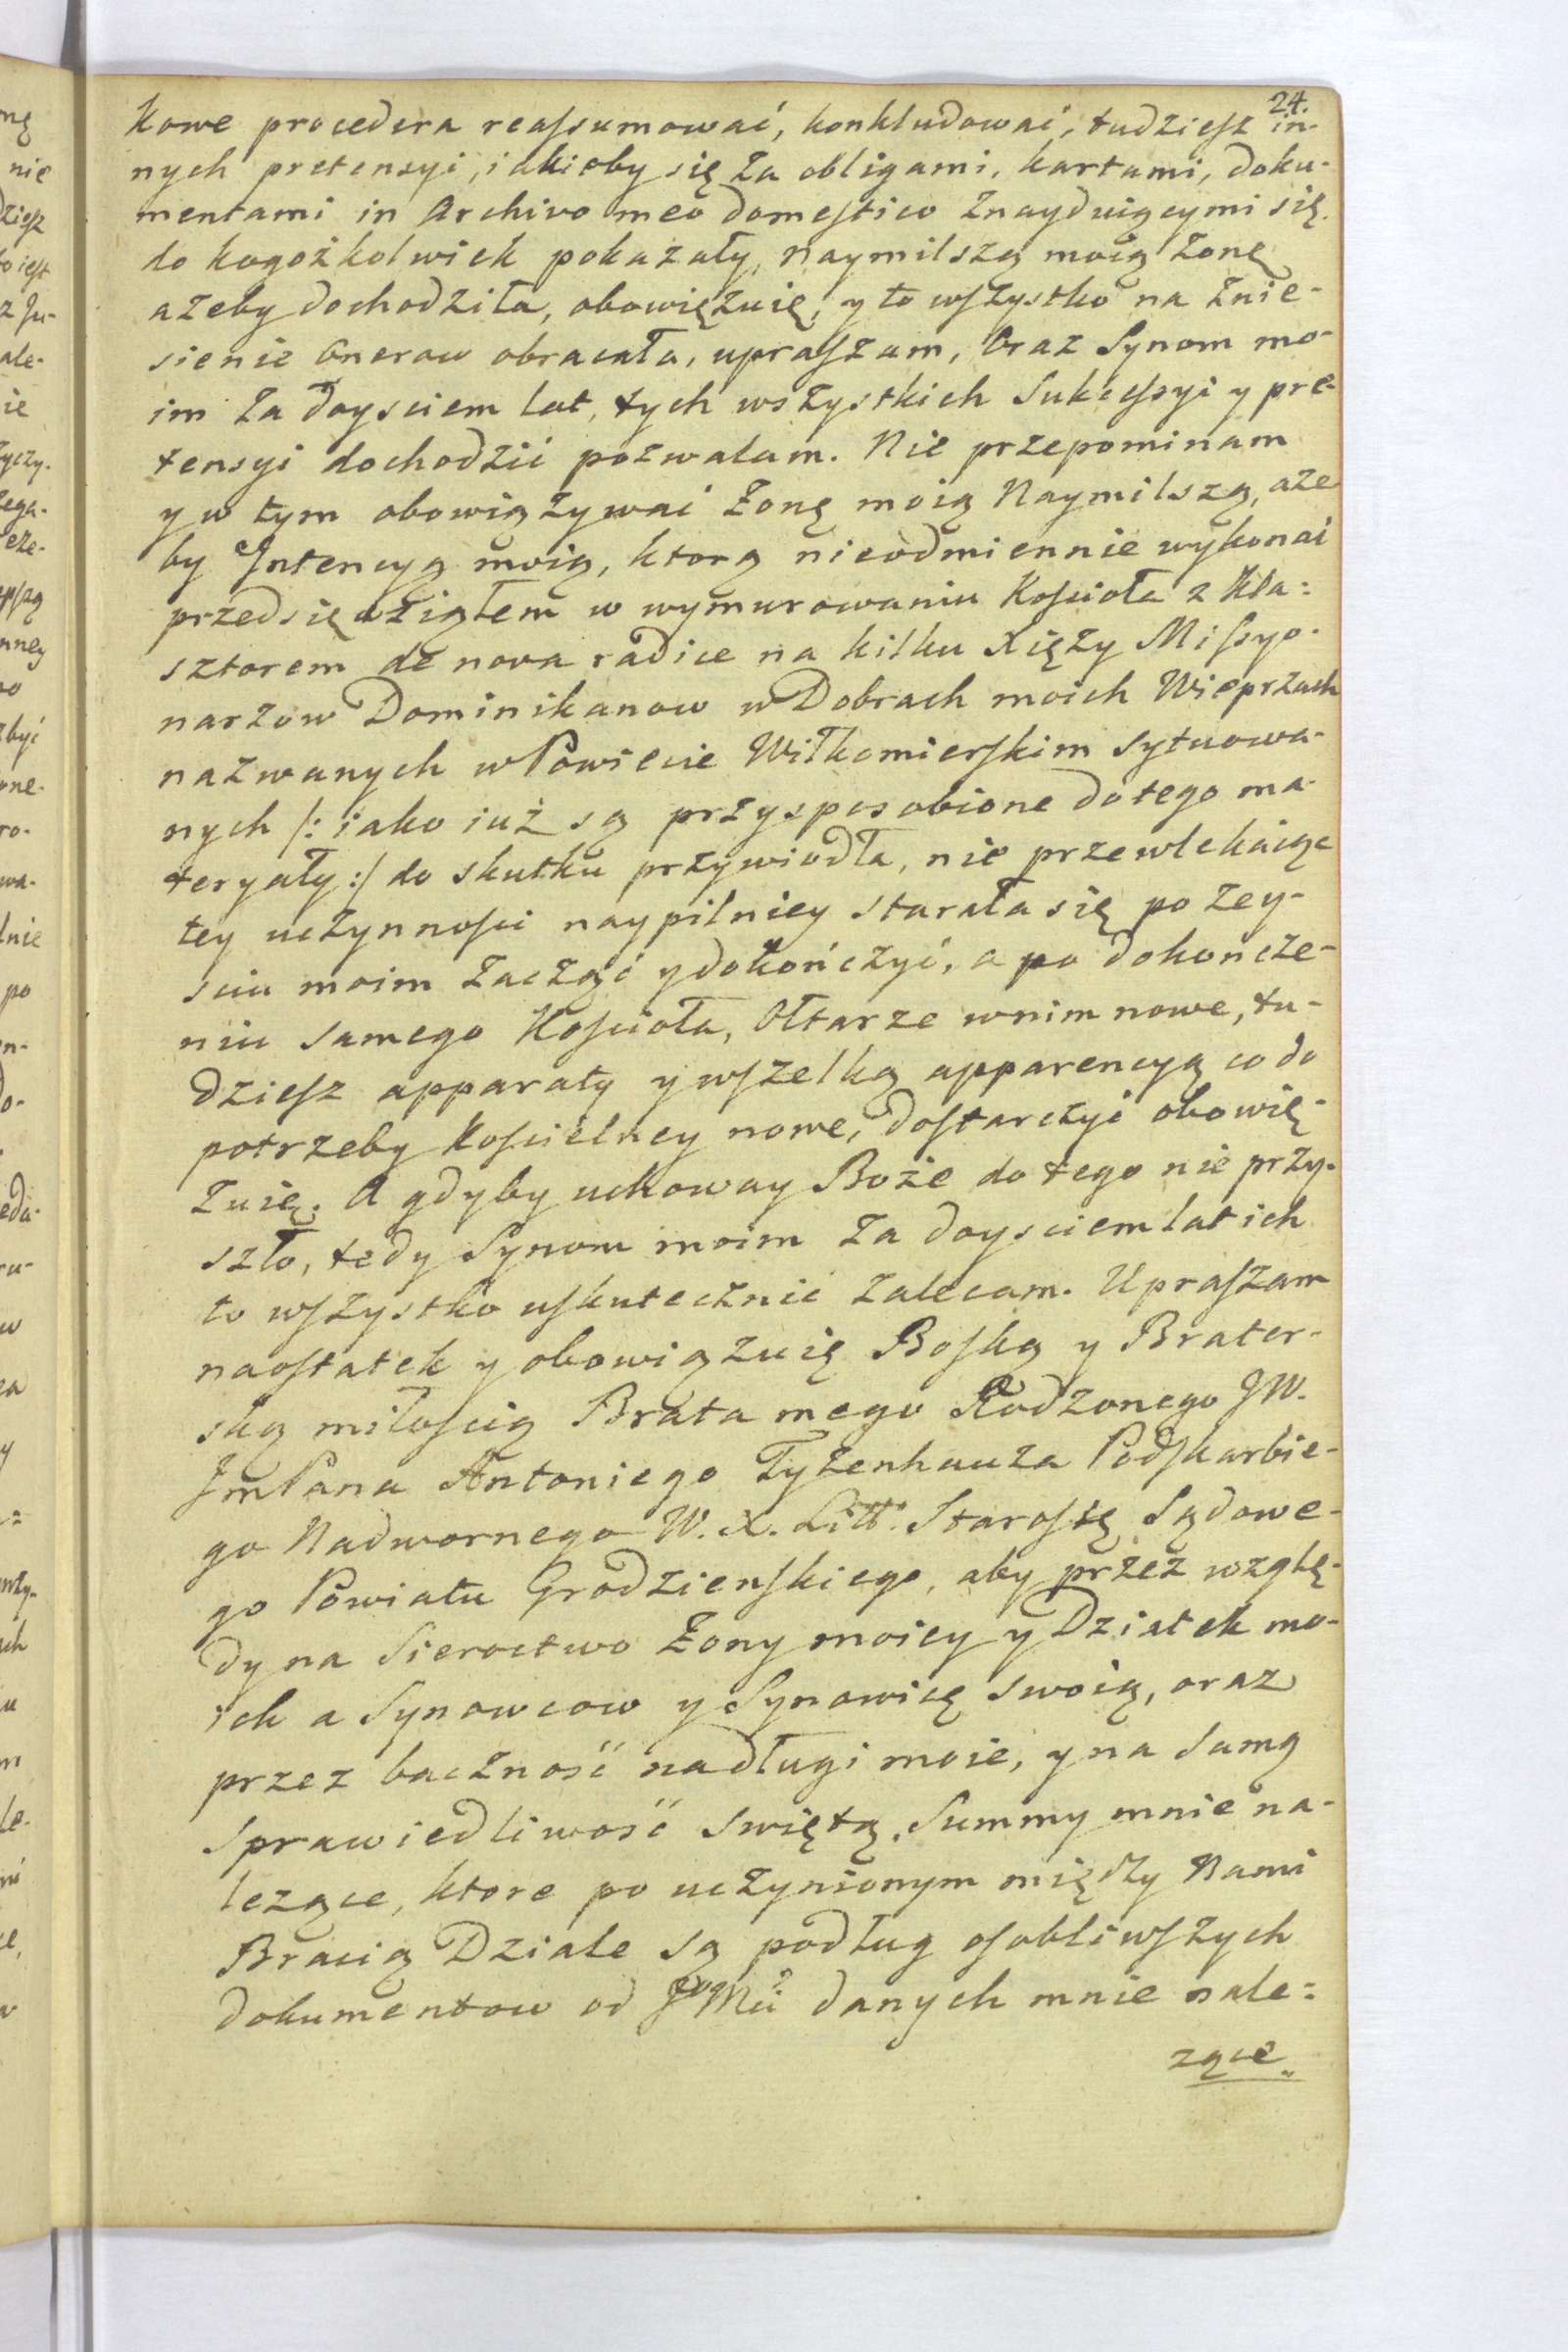 24.
kowe procedera reassumować, konkludować, tudziesz in-
nych pretensyi, iakieby się za obligami, kartami, doku-
mentami in Archivo meo domestico znayduiącymi się
do kogożkolwiek pokazały, naymilszą moią żonę
ażeby dochodziła, obowięzuię, y to wszystko na znie-
sienie Onerow obracała, upraszam, Oraz Synom mo-
im za doysciem lat, tych wszystkich Sukcessyi y pre-
tensyi dochodzić pozwalam. Nie przepominam
y w tym obowiązywać żonę moią Naymilszą, aże
by Intencyą moią, ktorą nieodmiennie wykonać
przedsięwziąłem w wymurowaniu Kościoła z Kla=
sztorem de nova radice na kilku Xięży Missyo-
narzow Dominikanow w Dobrach moich Wieprzach
nazwanych w Powiecie Wiłkomierskim sytuowa-
nych /: iako iuż są przysposobione do tego ma-
teryały :/ do skutku przywiodła, nie przewlekaiąc
tey uczynności naypilniey starała się po zey-
sciu moim zacząć y dokończyć, a po dokończe-
niu samego Kościoła, Ołtarze w nim nowe, tu-
dziesz apparaty y wszelką apparencyą co do
potrzeby Kościelney nowe, dostarczyć obowię-
zuię. A gdyby uchoway Boże do tego nie przy-
szło, tedy Synom moim za doysciem lat ich
to wszystko uskutecznić zalecam. Upraszam
naostatek y obowiązuię Boską y Brater-
ską miłością Brata mego Rodzonego JW.
JmPana Antoniego Tyzenhauza Podskarbie-
go Nadwornego W. X. Litt. Starostę Sądowe-
go Powiatu Grodzienskiego, aby przez wzglę-
dy na Sieroctwo Żony moiey y Dziatek mo-
ich a Synowcow y Synowicę swoią, oraz
przez baczność na długi moie, y na samą
Sprawiedliwość swiętą, Summy mnie na-
lezące, ktore po uczynionym między Nami
Bracią Dziale są podług osobliwszych
dokumentow od JegoMci danych mnie nale=
zące